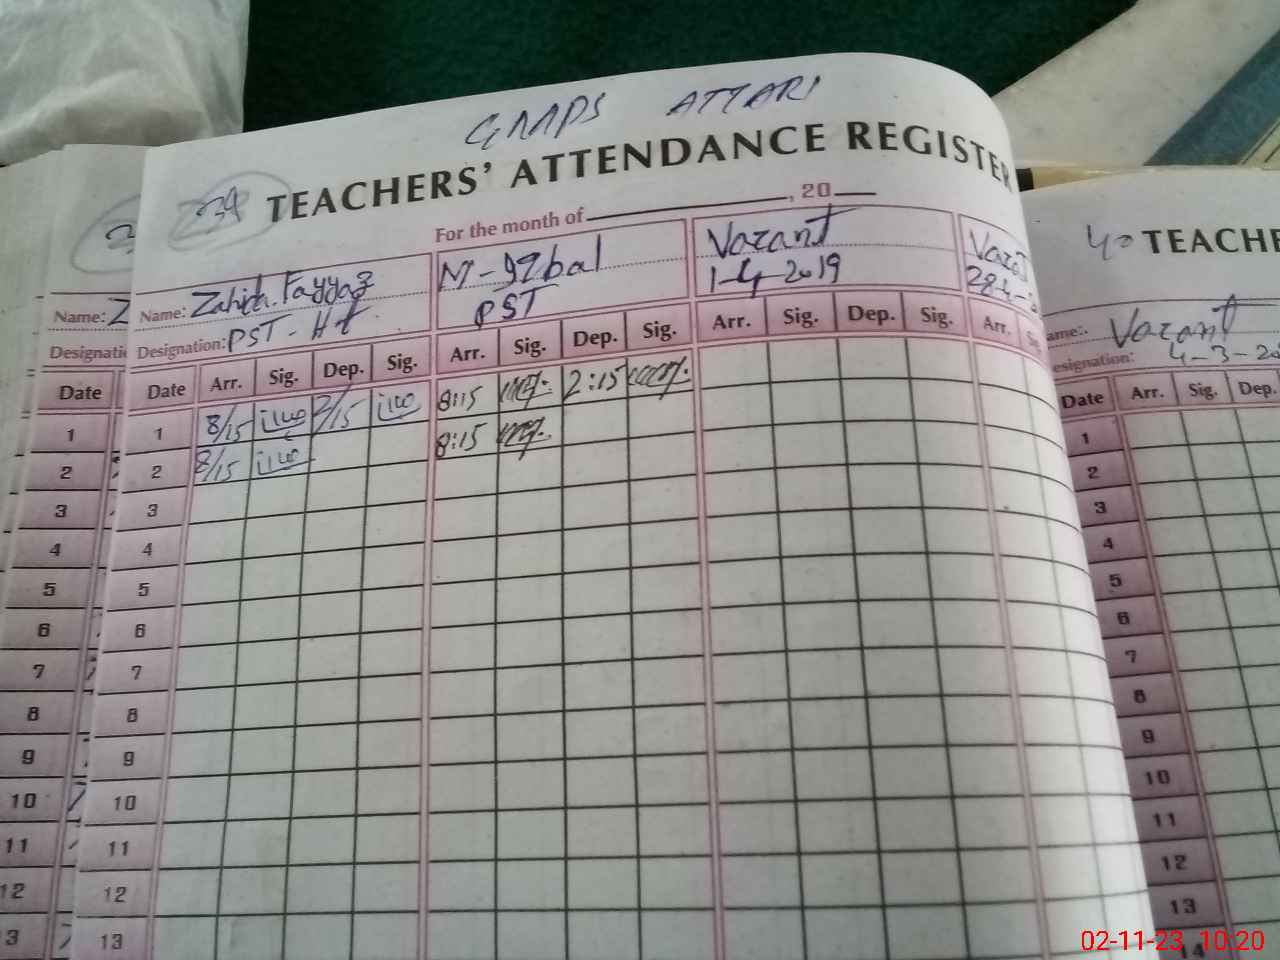 GMMPS ATTARI
39 TEACHERS' ATTENDANCE REGISTER
For the month of , 20
Name: Zahida Fayyaz M-Iqbal Vacant Vacant
Designation: PST-Ht PST 1-4-2019 28-4-
Date Arr. Sig. Dep. Sig. Arr. Sig. Dep. Sig. Arr. Sig. Dep. Sig. Arr.
1 8/15 2/15 8:15 2:15
2 8/15 8:15
3
4
5
6
7
8
9
10
11
12
13
Name: Z
Designati
Date
1
2
3
4
5
6
7
8
9
10
11
12
13
40 TEACHE
ame: Vacant
esignation: 4-3-20
Date Arr. Sig. Dep.
1
2
3
4
5
6
7
8
9
10
11
12
13
14
02-11-23 10:20